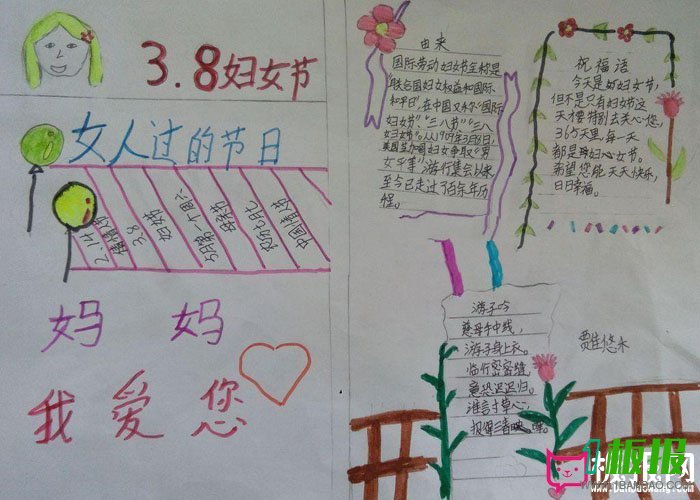 3.8妇女节
女人过的节日
2.14
情人节
3.8
妇女节
5月第一个周六
母亲节
农历七月七
中国情人节
妈 妈
我 爱 您
由来
国际劳动妇女节全称是
"联合国妇女权益和国际
和平日",在中国又称"国际
妇女节""三八节""三八
妇女节"。从1909年3月8日,
美国芝加哥妇女争取"男
女平等"游行集会以来
至今已走过了百年年历
程。
祝福语
今天是妇女节,
但不是只有妇女节这
天才要特别去关心您,
365天里,每一天
都是妇女节。
希望您能天天快乐,
日日幸福。
游子吟
慈母手中线,
游子身上衣。
临行密密缝,
意恐迟迟归。
谁言寸草心,
报得三春晖。
板报网